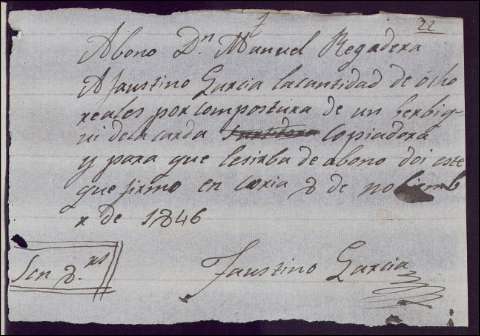 22
Abono Dn. Manuel Regadera
A faustino Garcia lacantidad de ocho
reales por compostura de un berbiq
ui dela carda Surtidora Copiadora
y para que lesirba de abono doi este
que firmo en coria 8 de nobiemb
r de 1846
Son 8. rs
Faustino Garcia